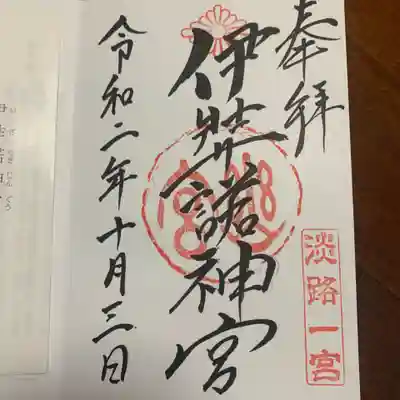 奉拝
伊弉諾神宮
淡路一宮
令和二年十月三日